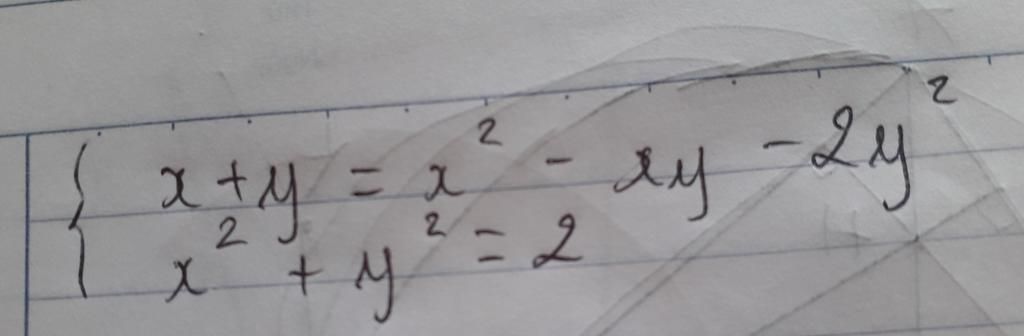 x + y = x² - xy - 2y²
x² + y² = 2